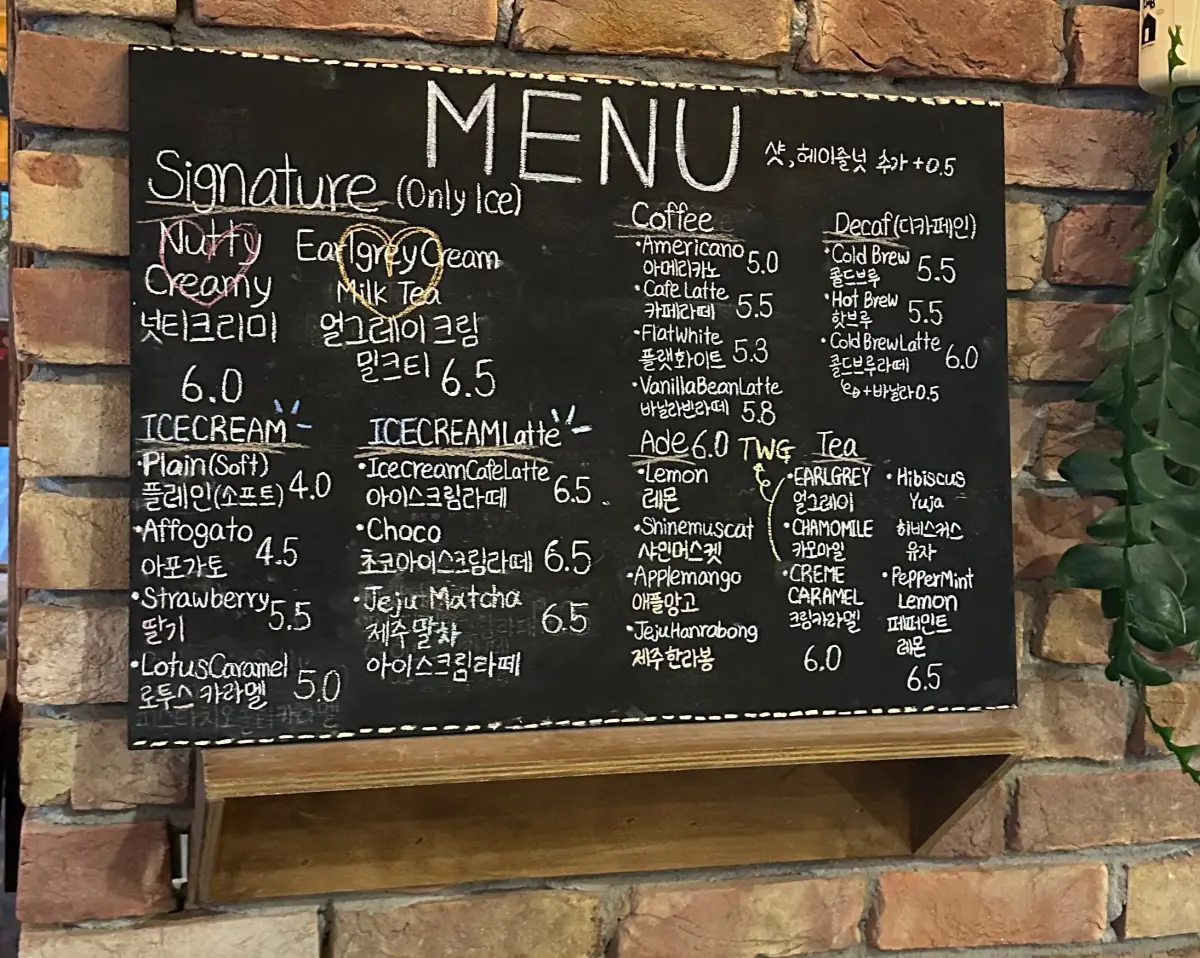 MENU
샷, 헤이즐넛 추가 +0.5
Signature (Only Ice)
Nutty
Creamy
넛티크리미
6.0
Earlgrey Cream
Milk Tea
얼그레이 크림
밀크티 6.5
ICECREAM
•Plain(Soft)
플레인(소프트) 4.0
•Affogato
아포가토 4.5
•Strawberry
딸기 5.5
•LotusCaramel
로투스 카라멜 5.0
ICECREAMLatte
•IcecreamCafeLatte
아이스크림라떼 6.5
•Choco
초코아이스크림라떼 6.5
•Jeju Matcha
제주말차 6.5
아이스크림라떼
Coffee
•Americano
아메리카노 5.0
•Cafe Latte
카페라떼 5.5
•FlatWhite
플랫화이트 5.3
•VanillaBeanLatte
바닐라빈라떼 5.8
Decaf(디카페인)
•Cold Brew
콜드브루 5.5
•Hot Brew
핫브루 5.5
•Cold BrewLatte
콜드브루라떼 6.0
+바닐라 0.5
Ade 6.0
•Lemon
레몬
•Shinemuscat
샤인머스켓
•Applemango
애플망고
•JejuHanrabong
제주한라봉
TWG Tea
•EARLGREY
얼그레이
•CHAMOMILE
카모마일
•CREME
CARAMEL
크림카라멜
6.0
•Hibiscus
Yuja
히비스커스
유자
•PepperMint
Lemon
페퍼민트
레몬
6.5